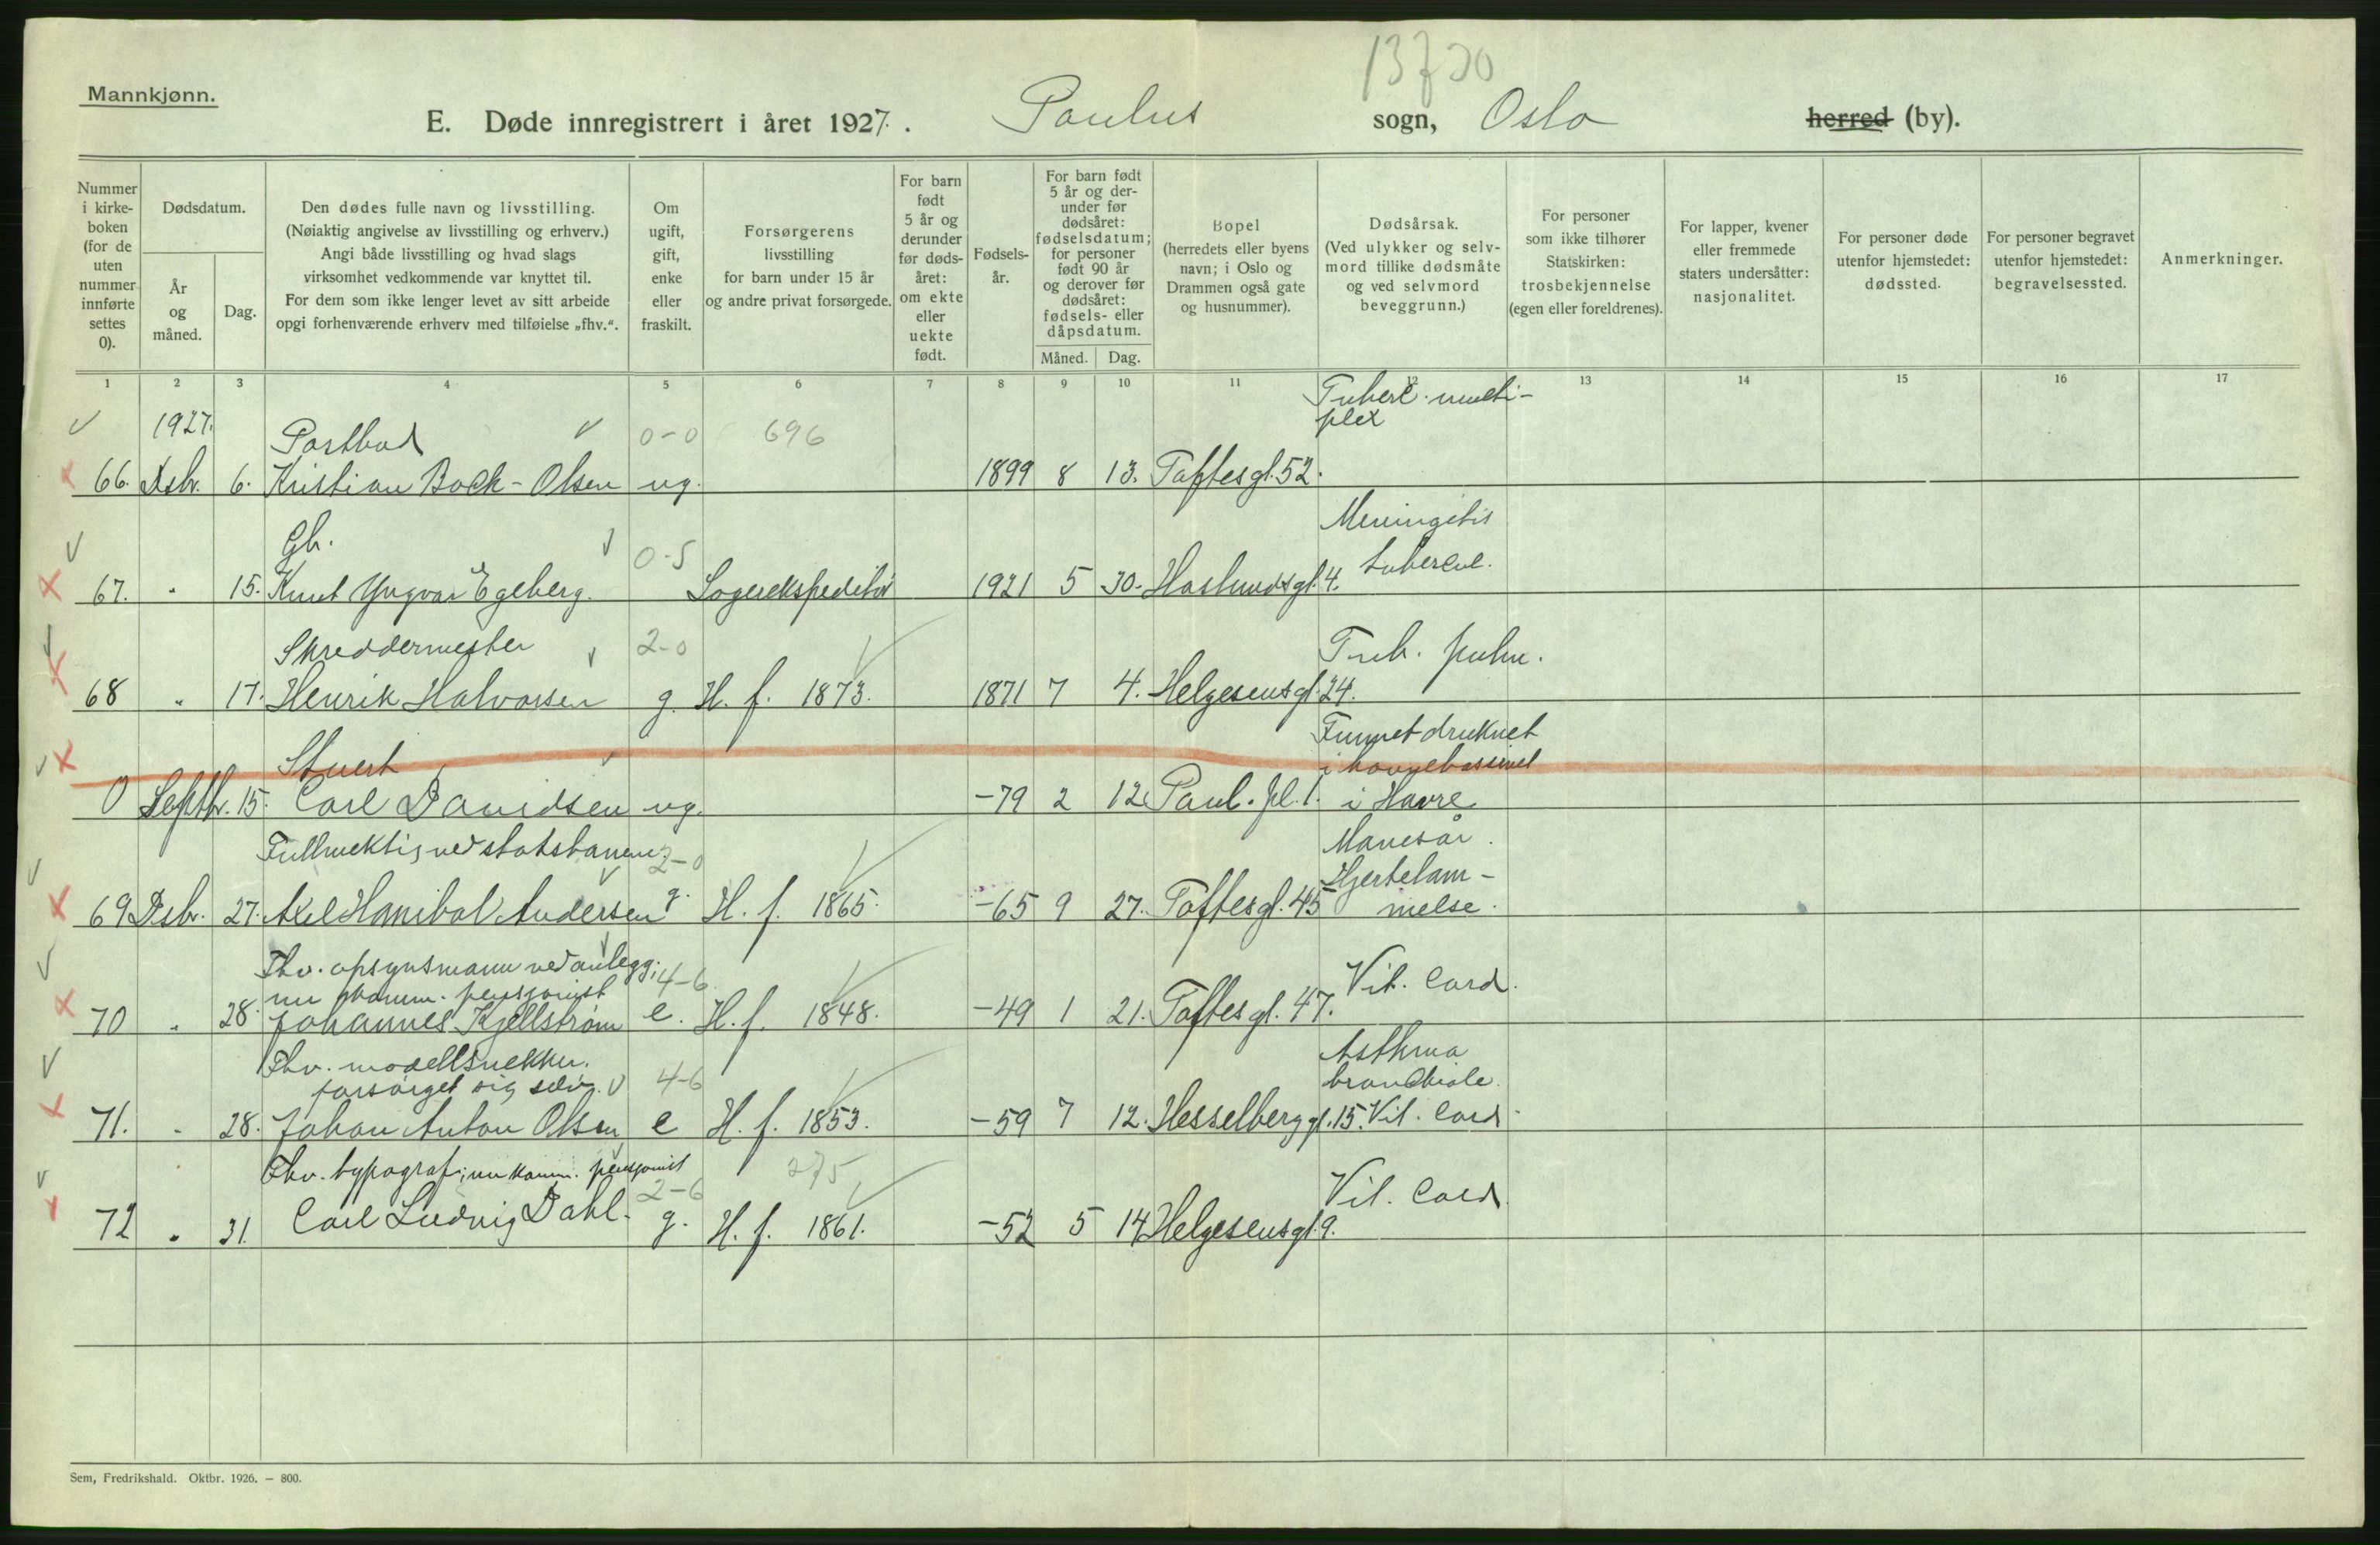 13730
Mannkjønn.
E. Døde innregistrert i året 1927. Paulus sogn, Oslo herred (by).
Nummer i kirke-boken (for de uten nummer innførte settes 0).
Dødsdatum.
År og måned.
Dag.
Den dødes fulle navn og livsstilling.
(Nøiaktig angivelse av livsstilling og erhverv.)
Angi både livsstilling og hvad slags
virksomhet vedkommende var knyttet til.
For dem som ikke lenger levet av sitt arbeide
opgi forhenværende erhverv med tilføielse „fhv.“.
Om ugift, gift, enke eller fraskilt.
Forsørgerens
livsstilling
for barn under 15 år
og andre privat forsørgede.
For barn født 5 år og derunder før døds-året: om ekte eller uekte født.
Fødsels-år.
For barn født 5 år og der-under før dødsåret: fødselsdatum; for personer født 90 år og derover før dødsåret: fødsels- eller dåpsdatum.
Måned. Dag.
Bopel
(herredets eller byens
navn; i Oslo og
Drammen også gate
og husnummer).
Dødsårsak.
(Ved ulykker og selv-
mord tillike dødsmåte
og ved selvmord
beveggrunn.)
For personer
som ikke tilhører
Statskirken:
trosbekjennelse
(egen eller foreldrenes).
For lapper, kvener
eller fremmede
staters undersåtter:
nasjonalitet.
For personer døde
utenfor hjemstedet:
dødssted.
For personer begravet
utenfor hjemstedet:
begravelsessted.
Anmerkninger.
1 2 3 4 5 6 7 8 9 10 11 12 13 14 15 16 17
1927. Postbud 0-0 696 Tuberc. multi-
plex
66. Dsbr. 6. Kristian Bock-Olsen ug. 1899 8 13. Toftesgt. 52.
Gb. 0-5 Meningitis
67. " 15. Knut Yngvar Egeberg. Lagerekspeditør 1921 5 30. Haslundsgt. 4. tubercul.
Skreddermester 2-0 Tub. pulm.
68 " 17. Henrik Halvorsen g. H. f. 1873. 1871 7 4. Helgesensgt. 24.
Stuert Funnet druknet
i havnebassinet
0 Septbr. 15. Carl Davidsen ug. -79 2 12. Paul. pl. 1. i Havre
Fullmektig ved statsbanene. 2-0 Mavesår.
Hjertelam-
69 Dsbr. 27. Axel Hanibal Andersen g. H. f. 1865. -65 9 27. Toftesgt. 45 melse.
Fhv. opsynsmann ved anlegg; 4-6
nu komm. pensjonist Vit. Cord.
70 " 28. Johannes Kjellstrøm e. H. f. 1848. -49 1 21. Toftesgt. 47.
Fhv. modellsnekker. Asthma
forsørget sig selv. 4-6 bronchiale.
71. " 28. Johan Anton Olsen e H. f. 1853. -59 7 12. Hesselberggt. 15. Vit. Cord.
Fhv. typograf; nu komm. pensjonist 275
2-6 Vit. Cord.
72 " 31. Carl Ludvig Dahl. g. H. f. 1861. -52 5 14 Helgesensgt. 9.
Sem, Fredrikshald. Oktbr. 1926. – 800.